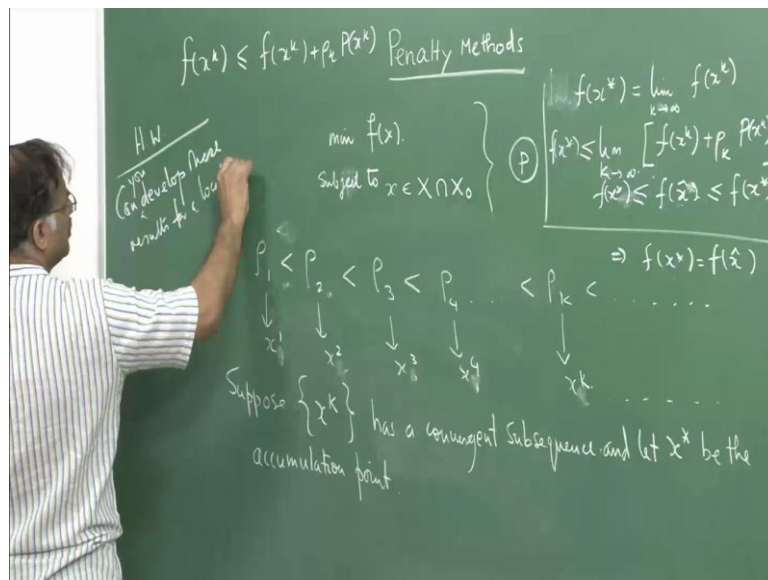 f(x^k) ≤ f(x^k) + ρ_k P(x^k) Penalty Methods
H W
Can you develop these
results for a
min f(x).
subject to x ∈ X ∩ X_0
(P)
f(x*) = lim_{k→∞} f(x^k)
f(x*) ≤ lim_{k→∞} [f(x^k) + ρ_k P(x^k)
f(x*) ≤ f(x̂) ≤ f(x*
⇒ f(x*) = f(x̂)
ρ_1 < ρ_2 < ρ_3 < ρ_4 .... < ρ_k < .......
↓ ↓ ↓ ↓ ↓
x^1 x^2 x^3 x^4 x^k. ......
Suppose {x^k} has a convergent subsequence and let x* be the
accumulation point.